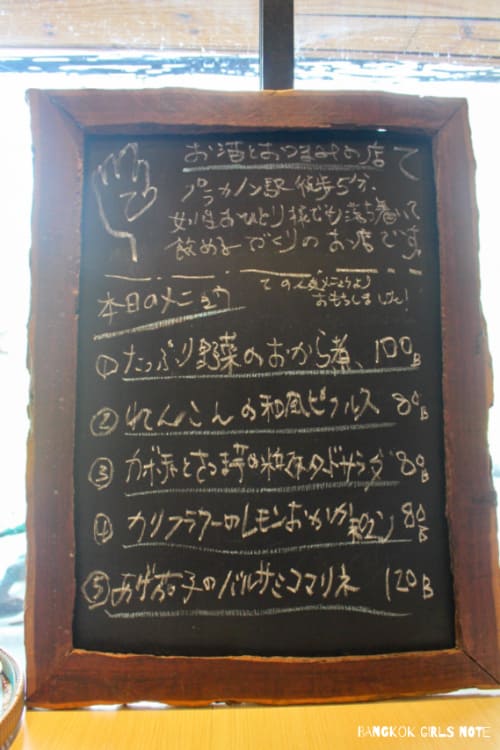 お酒とおつまみの店 て
プラカノン駅 徒歩5分。
女性おひとり様でも落ち着いて
飲める づくりのお店です。
て
本日のメニュー
ての人気メニューより
おもちしました!
①たっぷり野菜のおから煮、100B
②れんこんの和風ピクルス 80B
③カボチャとさつま芋の粒マスタードサラダ 80B
④カリフラワーのレモンおかか和え 80B
⑤あげ茄子のバルサミコマリネ 120B
BANGKOK GIRLS NOTE